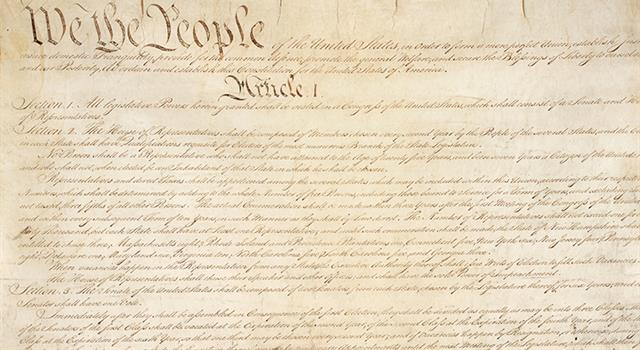 We the People of the United States, in Order to form a more perfect Union, establish
insure domestic Tranquility, provide for the common defence, promote the general Welfare, and secure the Blessings of Liberty to
and our Posterity, do ordain and establish this Constitution for the United States of America.
Article. I.
Section. 1. All legislative Powers herein granted shall be vested in a Congress of the United States, which shall consist of a Senate and
of Representatives.
Section. 2. The House of Representatives shall be composed of Members chosen every second Year by the People of the several States, and the
in each State shall have Qualifications requisite for Electors of the most numerous Branch of the State Legislature.
No Person shall be a Representative who shall not have attained to the Age of twenty five Years, and been seven Years a Citizen of the United
and who shall not, when elected, be an Inhabitant of that State in which he shall be chosen.
Representatives and direct Taxes shall be apportioned among the several States which may be included within this Union, according to their respective
Numbers, which shall be determined by adding to the whole Number of free Persons, including those bound to Service for a Term of Years, and excluding Indians
not taxed, three fifths of all other Persons. The actual Enumeration shall be made within three Years after the first Meeting of the Congress of the United
and within every subsequent Term of ten Years, in such Manner as they shall by Law direct. The Number of Representatives shall not exceed one for
thirty Thousand, but each State shall have at Least one Representative; and until such enumeration shall be made, the State of New Hampshire shall
entitled to chuse three, Massachusetts eight, Rhode-Island and Providence Plantations one, Connecticut five, New-York six, New Jersey four, Pennsylvania
eight, Delaware one, Maryland six, Virginia ten, North Carolina five, South Carolina five, and Georgia three.
When vacancies happen in the Representation from any State, the Executive Authority thereof shall issue Writs of Election to fill such Vacancies.
The House of Representatives shall chuse their Speaker and other Officers; and shall have the sole Power of Impeachment.
Section. 3. The Senate of the United States shall be composed of two Senators from each State, chosen by the Legislature thereof, for six Years; and
Senator shall have one Vote.
Immediately after they shall be assembled in Consequence of the first Election, they shall be divided as equally as may be into three Classes.
of the Senators of the first Class shall be vacated at the Expiration of the second Year, of the second Class at the Expiration of the fourth Year,
Class at the Expiration of the sixth Year, so that one third may be chosen every second Year; and if Vacancies happen by Resignation, or otherwise,